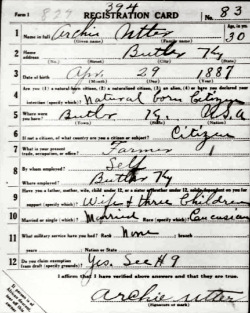 Form 1 394
REGISTRATION CARD No. 83
Age, in yrs. 30
1 Name in full Archie Utter
(Given name) (Family name)
2 Home address Butler Ky
(No.) (Street) (City) (State)
3 Date of birth Apr. 29 1887
(Month) (Day) (Year)
4 Are you (1) a natural-born citizen, (2) a naturalized citizen, (3) an alien, (4) or have you declared your
intention (specify which)? Natural born Citizen
5 Where were you born? Butler Ky. U.S.A
(Town) (State) (Nation)
6 If not a citizen, of what country are you a citizen or subject? Citizen
7 What is your present trade, occupation, or office? Farmer 1
8 By whom employed? Self
Where employed? Butler Ky
9 Have you a father, mother, wife, child under 12, or a sister or brother under 12, solely dependent on you for
support (specify which)? Wife & three Children
10 Married or single (which)? Married Race (specify which)? Caucasian
11 What military service have you had? Rank None branch
years Nation or State
12 Do you claim exemption from draft (specify grounds)? Yes. See #9
I affirm that I have verified above answers and that they are true.
Archie Utter
(Signature or mark)